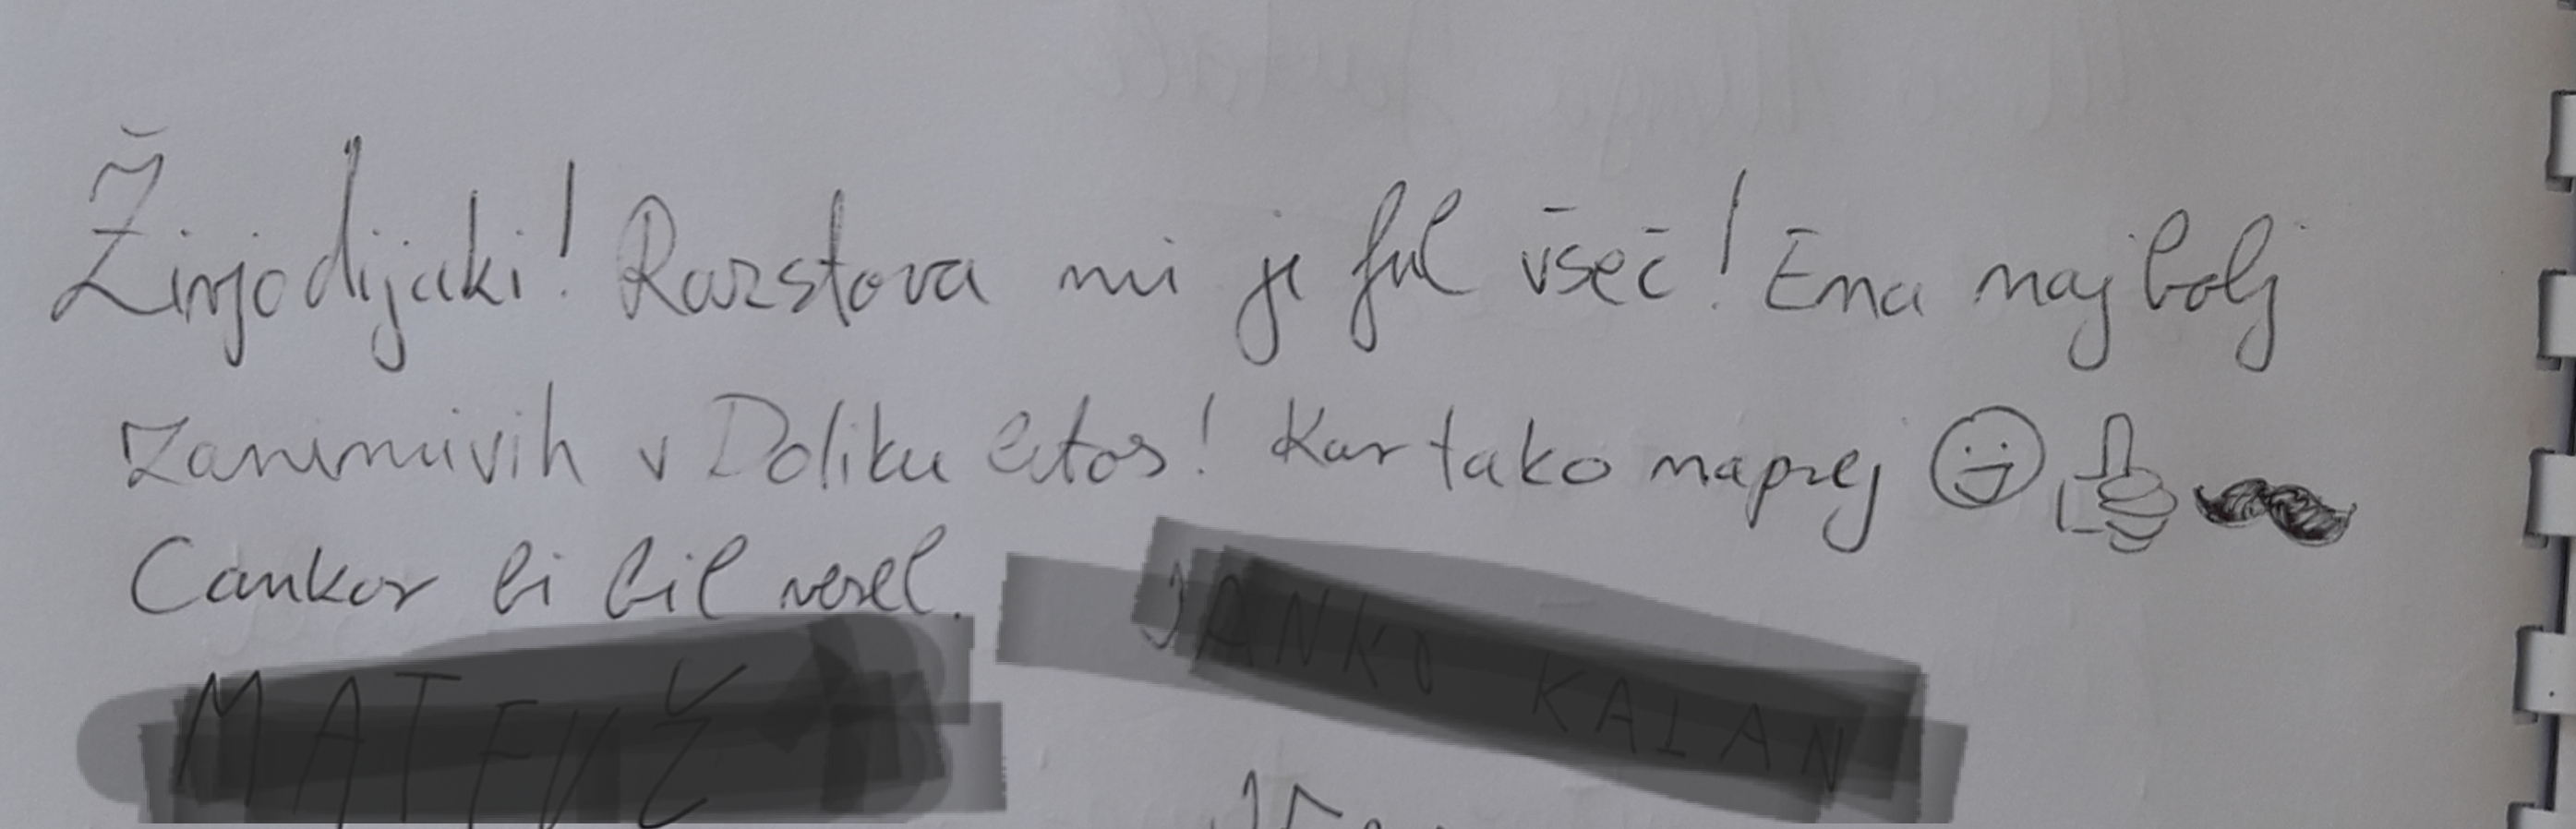 Živjo dijaki! Razstava mi je ful všeč! Ena najbolj
zanimivih v Doliku letos! Kar tako naprej
Cankar bi bil vesel.